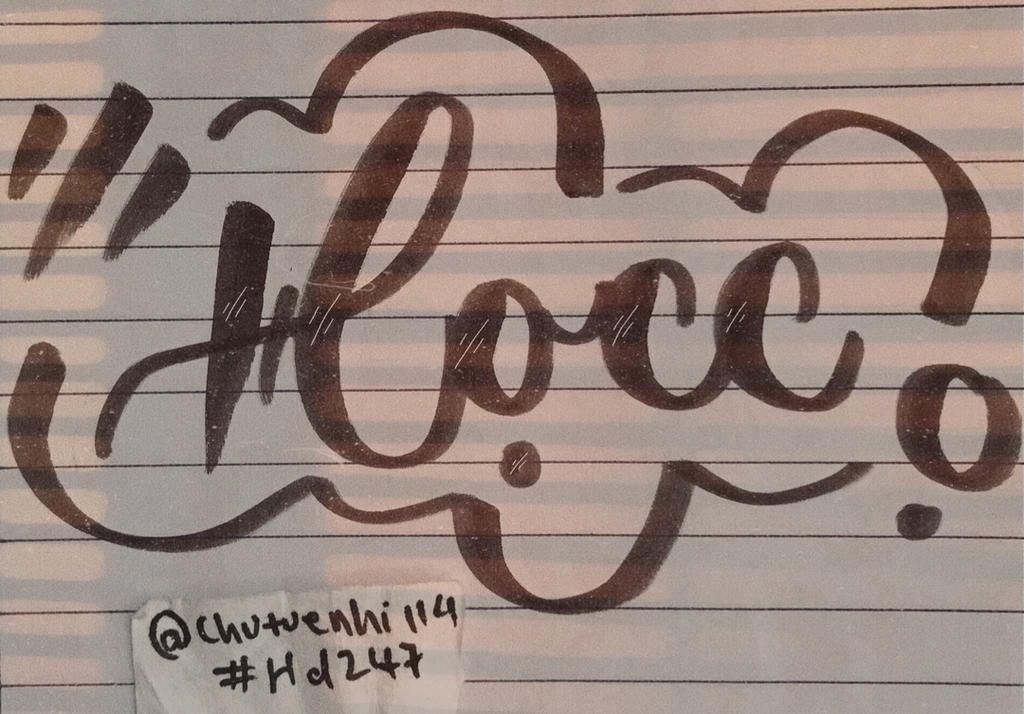 Họcc
@chutuenhi114
#Hd247